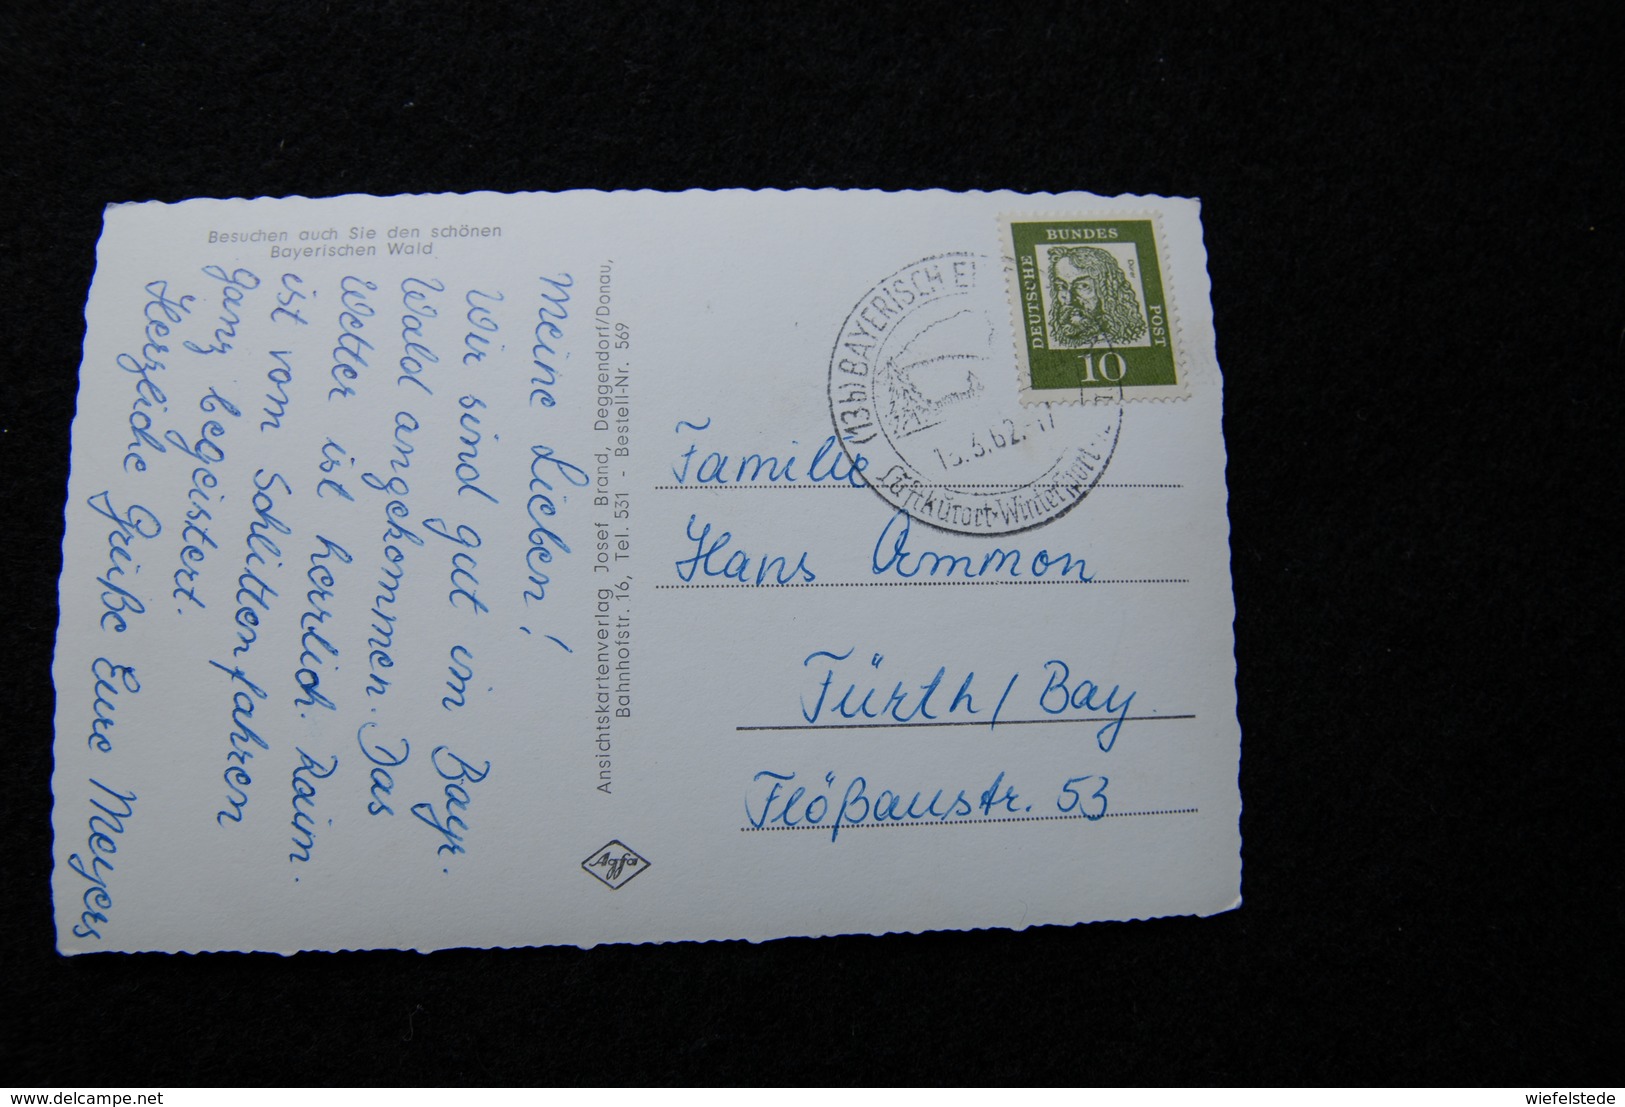 Besuchen auch Sie den schönen
Bayerischen Wald
Meine Lieben!
Wir sind gut im Bayr.
Wald angekommen. Das
Wetter ist herrlich. Raim.
ist vom Schlittenfahren
ganz begeistert.
Herzliche Grüße Eure Meyers
Ansichtskartenverlag Josef Brand, Deggendorf/Donau,
Bahnhofstr. 16, Tel. 531 - Bestell-Nr. 569
Agfa
(13b) BAYERISCH EI
.3.62.-17
Luftkurort-Wintersport
DEUTSCHE
BUNDES
POST
Dürer
10
Familie
Hans Ammon
Fürth/Bay.
Flößaustr. 53
delcampe.net
wiefelstede